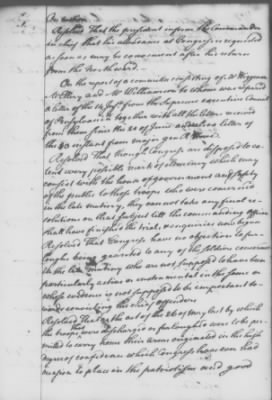 On motion
Resolved That the president inform the Commander
in chief that his attendance at Congress is requested
as soon as may be convenient after his return
from the Northward.
On the report of a committee consisting of
McHenry and Mr Williamson to whom was referred
a letter of the from the Supreme executive Council
of Pensylvania together with all the letters received
from them since the 21 of June and also a letter of
the instant from major genl Howe
Resolved That though Congress are disposed to ex-
tend every possible mark of clemency which may
consist with the honor of government and safety
of the public to those troops who were concerned
in the late mutiny, they cannot take any final re-
solutions on that subject till the commanding officer
shall have finished the trials & enquiries now
Resolved That Congress have no objection to fur-
loughs being granted to any of the soldiers concerned
in the late mutiny who are not supposed to have been
particularly active or instrumental in the same or
whose evidence is not supposed to be important to-
wards convicting the chief offenders
Resolved That the act of the 26 of May last by which
the troops were discharged or furloughed were to be per-
mitted to carry home their arms originated in the high
degree of confidence which Congress have ever had
reason to place in the patriotism and good